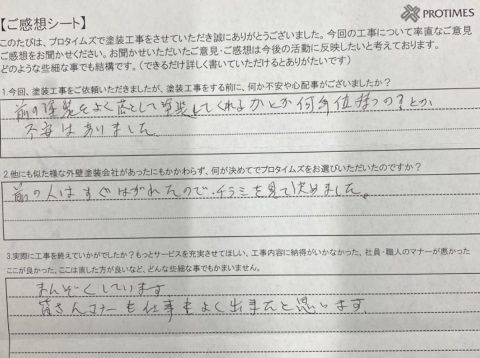 【ご感想シート】
PROTIMES
このたびは、プロタイムズで塗装工事をさせていただき誠にありがとうございました。今回の工事について率直なご意見
ご感想をお聞かせください。お聞かせいただいたご意見・ご感想は今後の活動に反映したいと考えております。
どのような些細な事でも結構です。（できるだけ詳しく書いていただけるとありがたいです）
1.今回、塗装工事をご依頼いただきましたが、塗装工事をする前に、何か不安や心配事がございましたか？
前の塗装をよく落として塗装してくれるかとか何年位持つの？とか
不安はありました。
2.他にも似た様な外壁塗装会社があったにもかかわらず、何が決めてでプロタイムズをお選びいただいたのですか？
前の人はすぐはがれたので、チラシを見て決めました。
3.実際に工事を終えていかがでしたか？もっとサービスを充実させてほしい、工事内容に納得がいかなかった、社員・職人のマナーが悪かった
ここが良かった、ここは直した方が良いなど、どんな些細な事でもかまいません。
まんぞくしています
皆さんマナーも仕事もよく出来たと思います。